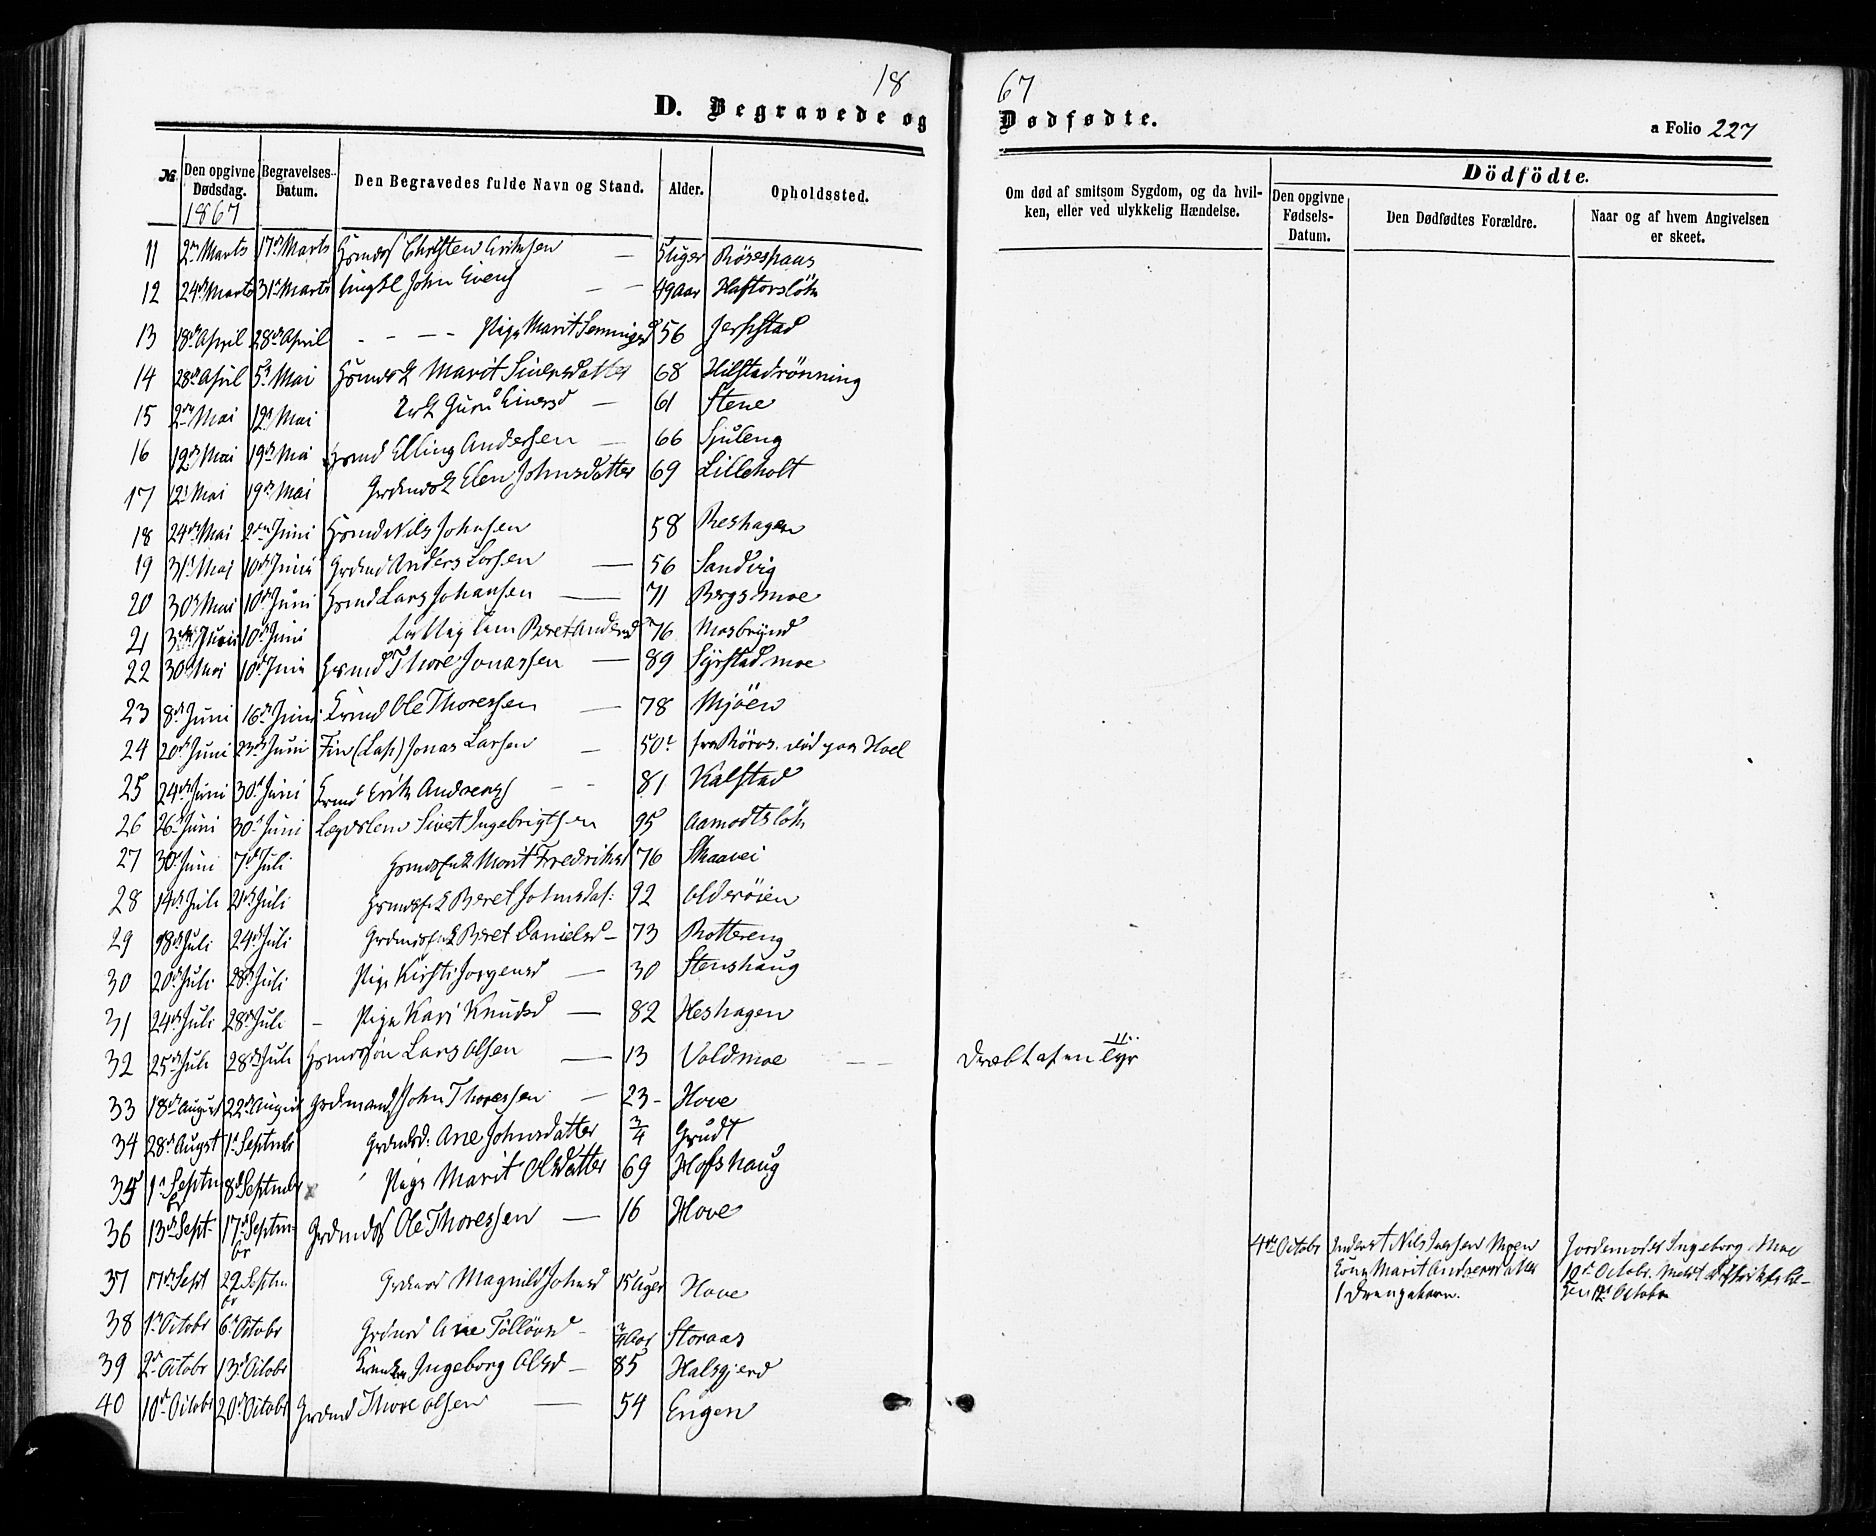 18 67
D. Begravede og Dødfødte.
a Folio 227
№ Den opgivne Dødsdag. Begravelses-Datum. Den Begravedes fulde Navn og Stand. Alder. Opholdssted.
Om død af smitsom Sygdom, og da hvil-
ken, eller ved ulykkelig Hændelse.
Dödfödte.
Den opgivne Fødsels-Datum. Den Dødfødtes Forældre. Naar og af hvem Angivelsen er skeet.
1867
11 2den Marts 17de Marts Christen Eriksen — 5 Uger
12 24de Marts 31te Marts John Evens — — 49 Aar
13 18de April 28de April - - — — Pige Marit 56
14 28de April 5te Mai Marit Siversdatter 68 Hilstadrönning
15 2den Mai 12te Mai Guru Einersd — 61 Stene
16 12te Mai 19de Mai Hsmd Elling Andersen — 66 Sjuleng
17 12te Mai 19de Mai Elen Johnsdatter 69 Lilleholt
18 24de Mai 2den Juni Hsmd Nils Johnsen 58
19 31te Mai 10de Juni Grdmd Anders Larsen — 56 Sandvig
20 30te Mai 10de Juni Hsmd Lars Johansen — 71 Bergsmoe
21 3die Juni 10de Juni Beret Andersd 76
22 30te Mai 10de Juni Hsmd Thore Jonassen — 89 Syrstadmoe
23 8de Juni 16de Juni Ole Thoresen — 78 Mjöen
24 20de Juni 23de Juni Fin (Lap) Jonas Larsen — 50 fra Röros. död paa Hoel
25 24de Juni 30te Juni Erik — — 81 Kalstad
26 26de Juni 30te Juni Lægdslem Sivert Ingebrigtsen 95 Aamodtslök
27 30te Juni 7de Juli Marit Fredriksd 76 Skaavei
28 14de Juli 21de Juli Beret Johnsdat: 92 Olderöien
29 18de Juli 24de Juli Beret Danielsd — 73 Rottereng
30 20de Juli 28de Juli Pige Kirsti Jorgensd — 30 Stenshaug
31 24de Juli 28de Juli - Pige Kari Knudsd — 82 Heshagen
32 25de Juli 28de Juli Hsmdssøn Lars Olsen — 13 Voldmoe — — Dræbt af en Tyr
33 18de August 22de August John Thoresen — 23 - Hove
34 28de Augst 1te Septmbr Grdmdsd: Ane Johnsdatter 3/4 Grudt
35 1te Septmbr 8de Septmbr Pige Marit Olsdatter 69 Hofshaug
36 13de Sept. 17de Septmbr Ole Thoressen — 16 Hove
4de Octobr Nils Iversen Moen
Kone Marit Andersdatter
1 Drengebarn.
Jordemoder Ingeborg Moe
12te Octobr
37 17de Sept 22 Septmbr Magnild Johnsd 15 Uger Hove
38 1te Octobr 6te Octobr Ane Tollövsd — 3/4 Aar Storaas
39 2den Octobr 13de Octobr Ingeborg Olsd — 85 Halsgjerd
40 10de Octobr 20de Octobr Grdmd Thore Olsen — 54 Engen